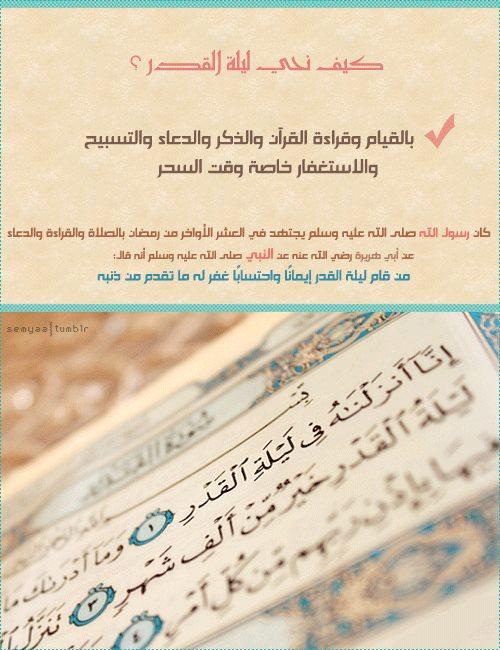 كيف نحي ليلة القدر ؟
بالقيام وقراءة القرآن والذكر والدعاء والتسبيح
والاستغفار خاصة وقت السحر
كان رسول الله صلى الله عليه وسلم يجتهد في العشر الأواخر من رمضان بالصلاة والقراءة والدعاء
عن أبي هريرة رضي الله عنه عن النبي صلى الله عليه وسلم أنه قال:
من قام ليلة القدر إيمانًا واحتسابًا غفر له ما تقدم من ذنبه
semyaa|tumblr
إِنَّا أَنزَلْنَٰهُ فِى لَيْلَةِ ٱلْقَدْرِ ١ وَمَآ أَدْرَىٰكَ مَا
لَيْلَةُ ٱلْقَدْرِ خَيْرٌ مِّنْ أَلْفِ شَهْرٍ ٣ تَنَزَّلُ
فِيهَا بِإِذْنِ رَبِّهِم مِّن كُلِّ أَمْرٍ ٤